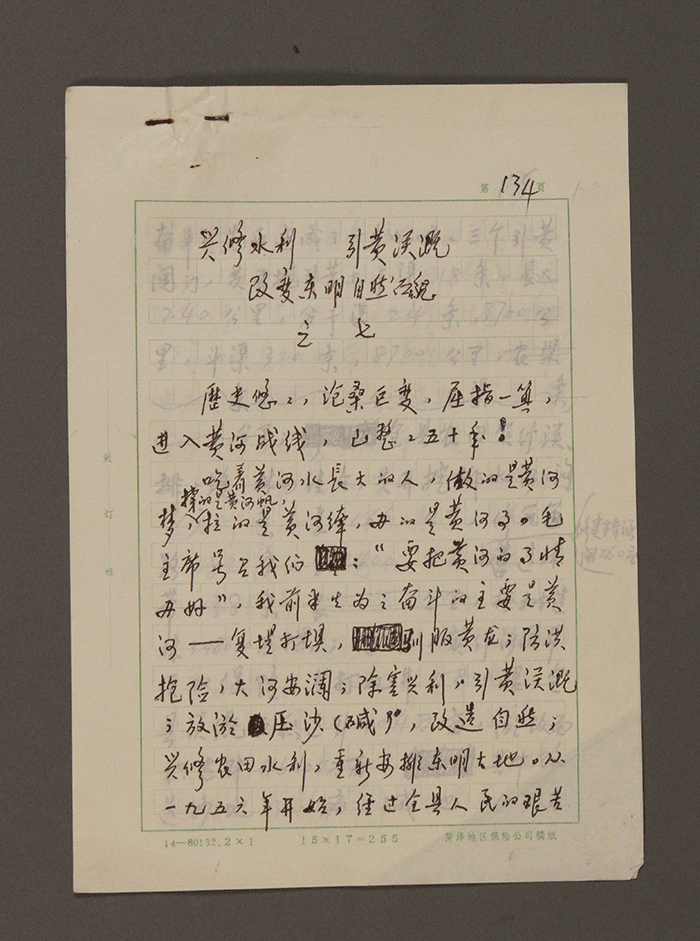 第134頁
兴修水利 引黄溉灌
改变东明自然面貌
之七
歷史悠〻,沧桑巨变,屈指一算,
进入黄河战线,已整〻五十年!
吃着黄河水長大的人,做的是黄河
撑的是黄河帆,
梦,拉的是黄河绛,办的是黄河事。毛
主席号召我们:“要把黄河的事情
办好”,我前半生为之奋斗的主要是黄
河——复堤打坝,驯服黄龙;防洪
抢险,大河安澜;除害兴利,引黄溉灌
;放淤压沙(碱),改造自然;
兴修农田水利,重新安排东明大地。从
一九五六年开始,经过全县人民的艰苦
装
订
线
14—80132.2×1 15×17=255 菏泽地区保险公司稿纸